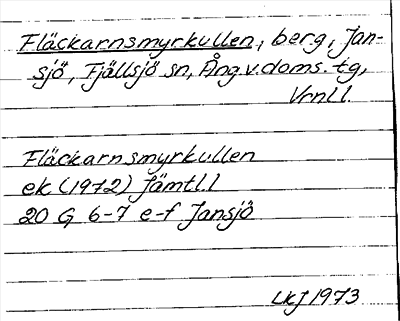 Fläckarnsmyrkullen, berg, Jan-
sjö, Fjällsjö sn, Ång.v.doms.tg,
Vrnll.
Fläckarnsmyrkullen
ek (1972) Jämtl.l
20 G 6-7 e-f Jansjö
LKJ 1973